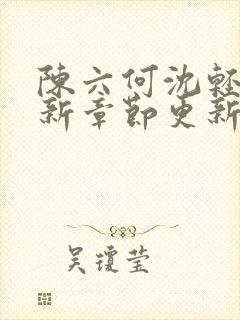 陳六何沈輕
新章節更新
吴瓊莹